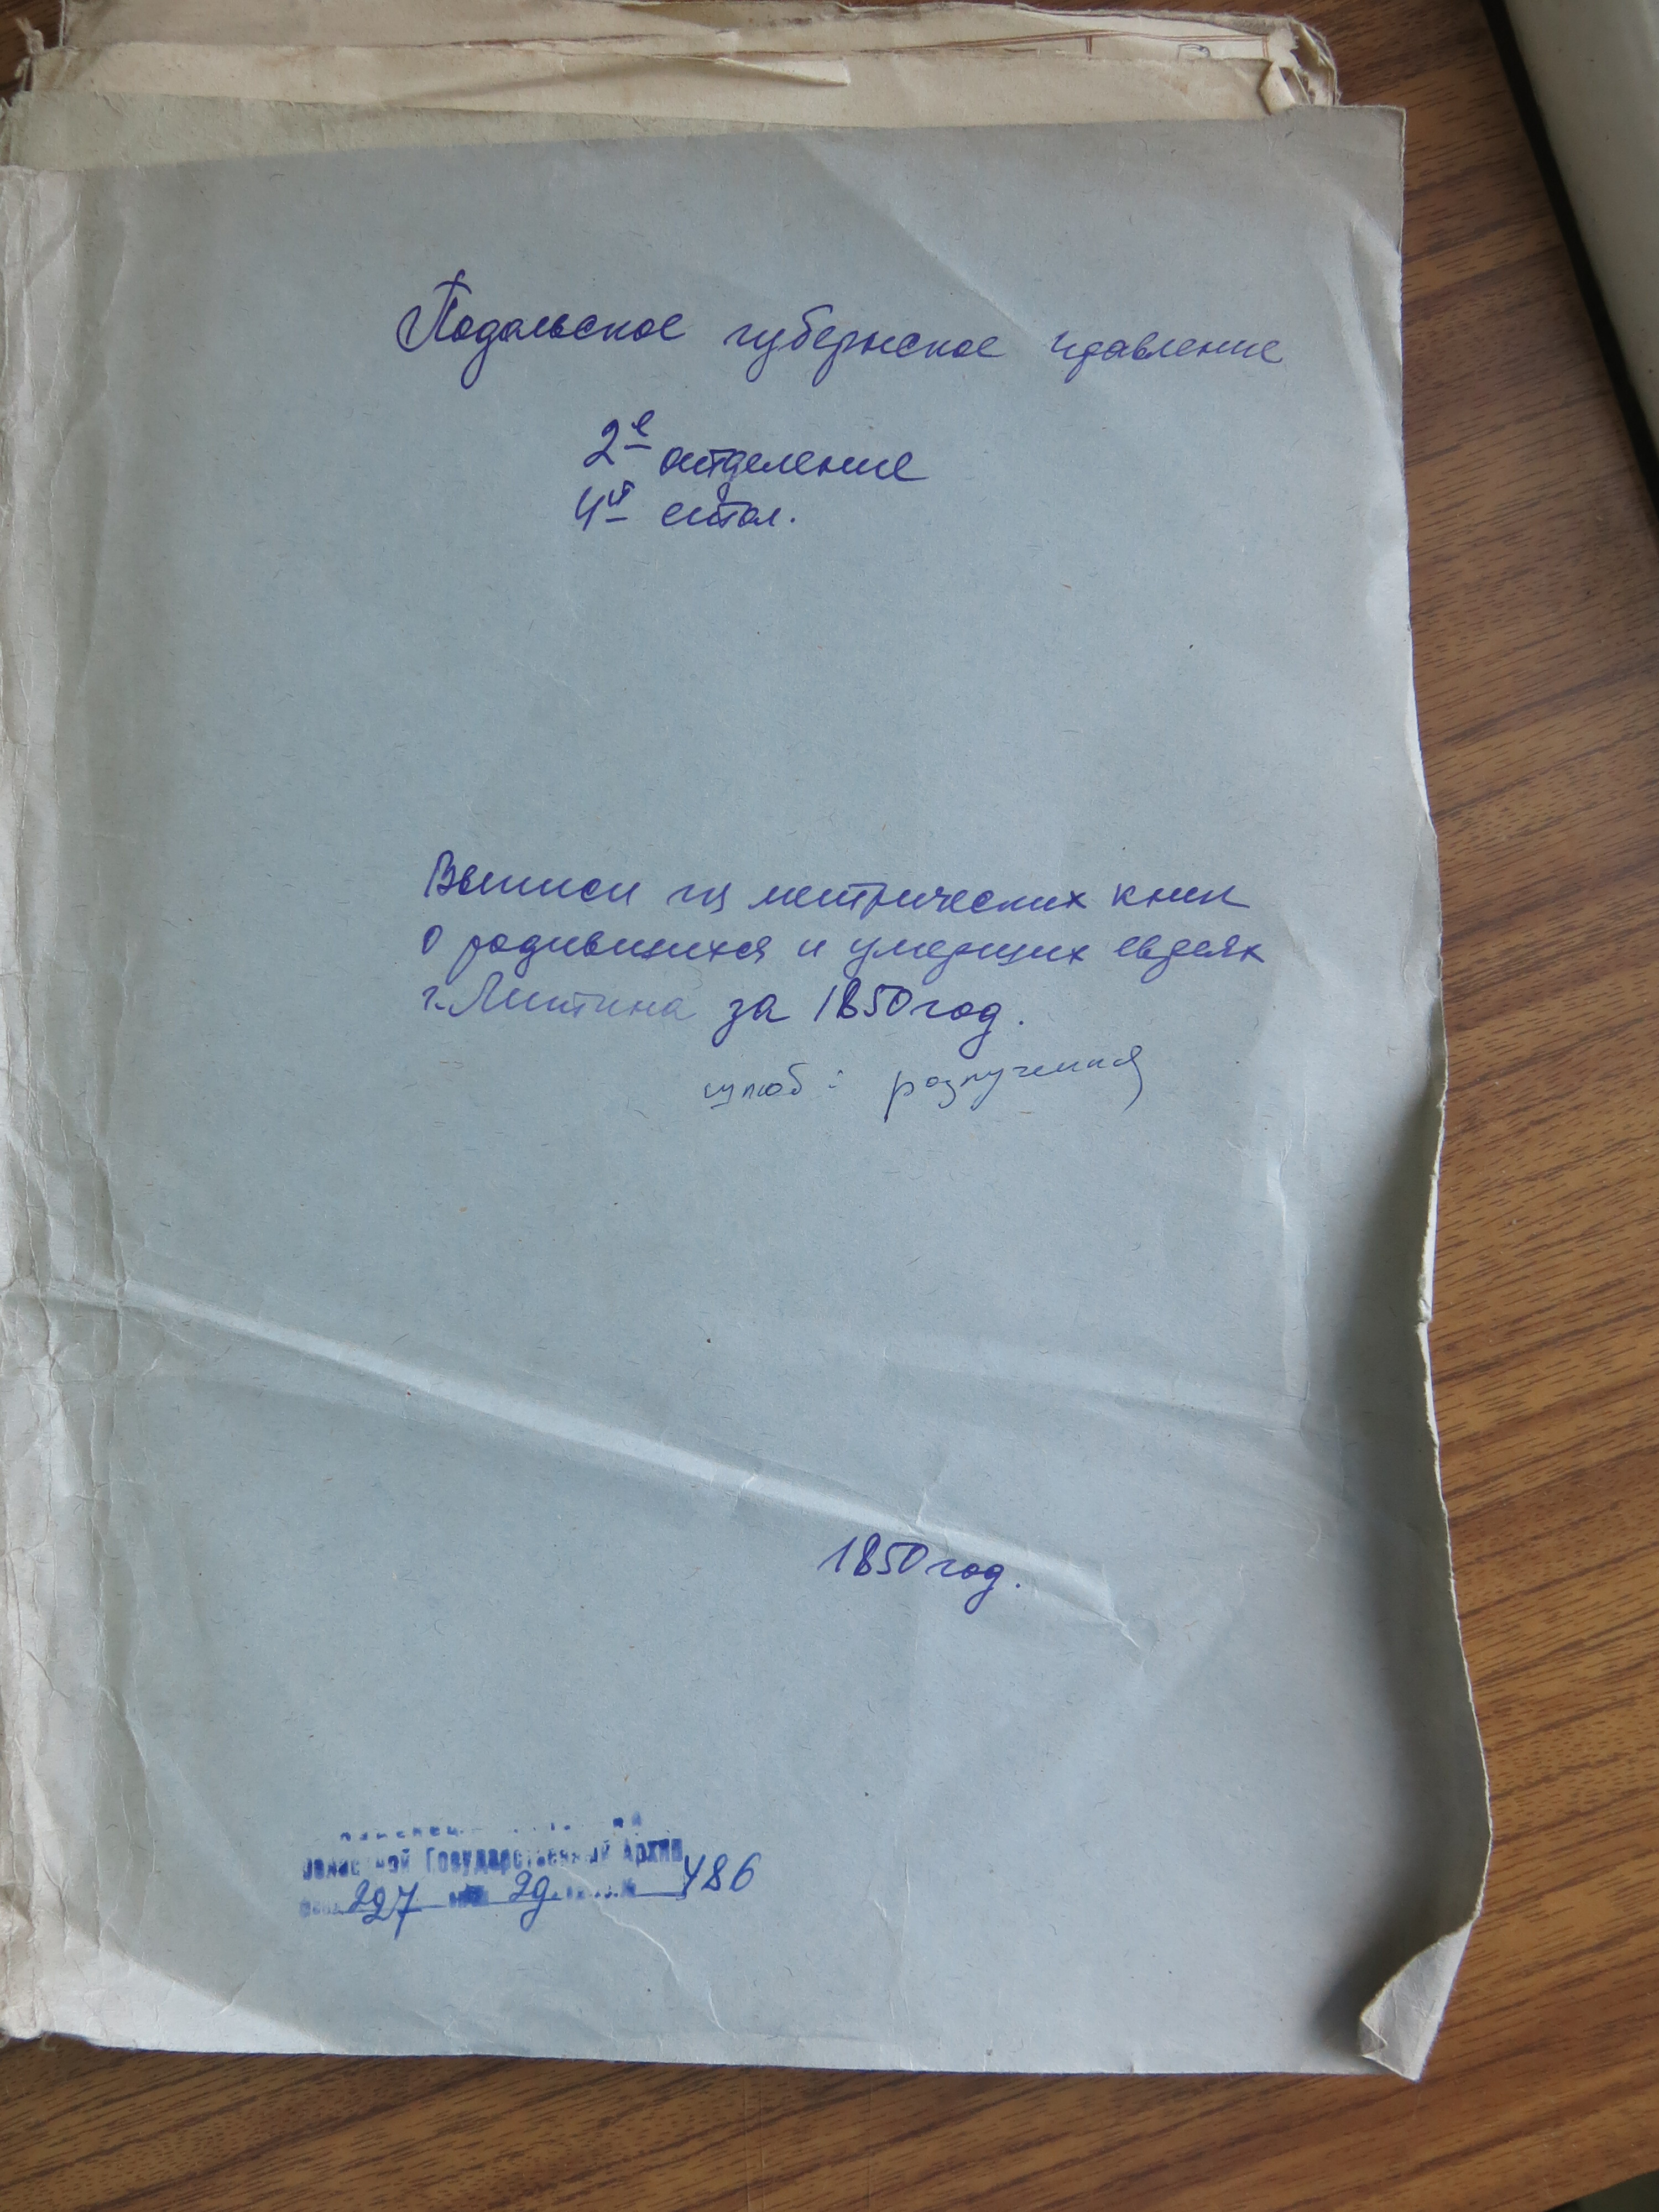 Подольское губернское правление
2е отделение
4й стол.
Выписи из метрических книг
о родившихся и умерших евреях
г. Литина за 1850 год.
шлюб: розлучення
1850 год.
Областной Государственный Архив
фонд 227 опись 2д. 486